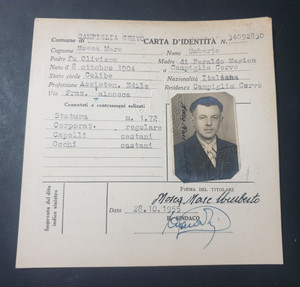 Comune di CAMPIGLIA CERVO
CARTA D'IDENTITÀ N. 36092830
Cognome Mosca Marc Nome Umberto
Padre fu Oliviero Madre di Heraldo Marian
Nato il 8 ottobre 1904 a Campiglia Cervo
Stato civile Celibe Nazionalità Italiana
Professione Assisten. Edile Residenza Campiglia Cervo
Via Fraz.
Connotati e contrassegni salienti
Statura m. 1.72
Corporat. regolare
Capelli castani
Occhi castani
Impronta del dito
indice sinistro
FIRMA DEL TITOLARE
Mosca Marc Umberto
Data 28.10.1955
IL SINDACO